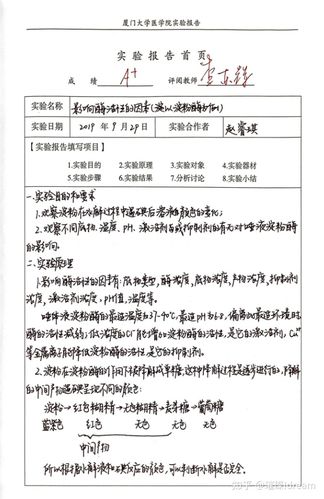 厦门大学医学院实验报告
实验报告首页
成 绩 A+ 评阅教师
实验名称 影响酶活性的因素(以淀粉酶为例)
实验日期 2019年9月29日 实验合作者 赵睿琪
【实验报告填写项目】
1.实验目的 2.实验原理 3.实验对象 4.实验器材
5.实验步骤 6.实验结果 7.分析讨论 8.实验小结
一.实验目的和要求
1.观察淀粉在水解过程中遇碘后溶液颜色的变化;
2.观察不同底物、温度、PH、激活剂与抑制剂的有无对唾液淀粉酶
的影响.
二.实验原理
1.影响酶活性的因素有:底物类型,酶浓度,底物浓度,产物浓度,抑制剂
浓度,激活剂浓度,pH值,温度等。
唾液淀粉酶的最适温度为37-40℃,最适pH为6.8,偏离的最适环境时
酶的活性减弱;低浓度的Cl⁻能增加淀粉酶的活性,是它的激活剂,Cu²⁺
等金属离子能降低淀粉酶的活性,是它的抑制剂。
2.淀粉在淀粉酶的作用下被降解成葡糖,这种降解过程是逐步进行的,降解
的中间产物遇碘呈现不同的颜色:
淀粉→红色糊精→无色糊精→麦芽糖→葡萄糖
蓝紫色 红色 无色 无色
中间产物
所以根据水解液和碘反应的颜色,可以判断水解是否完全.
知乎 @dream